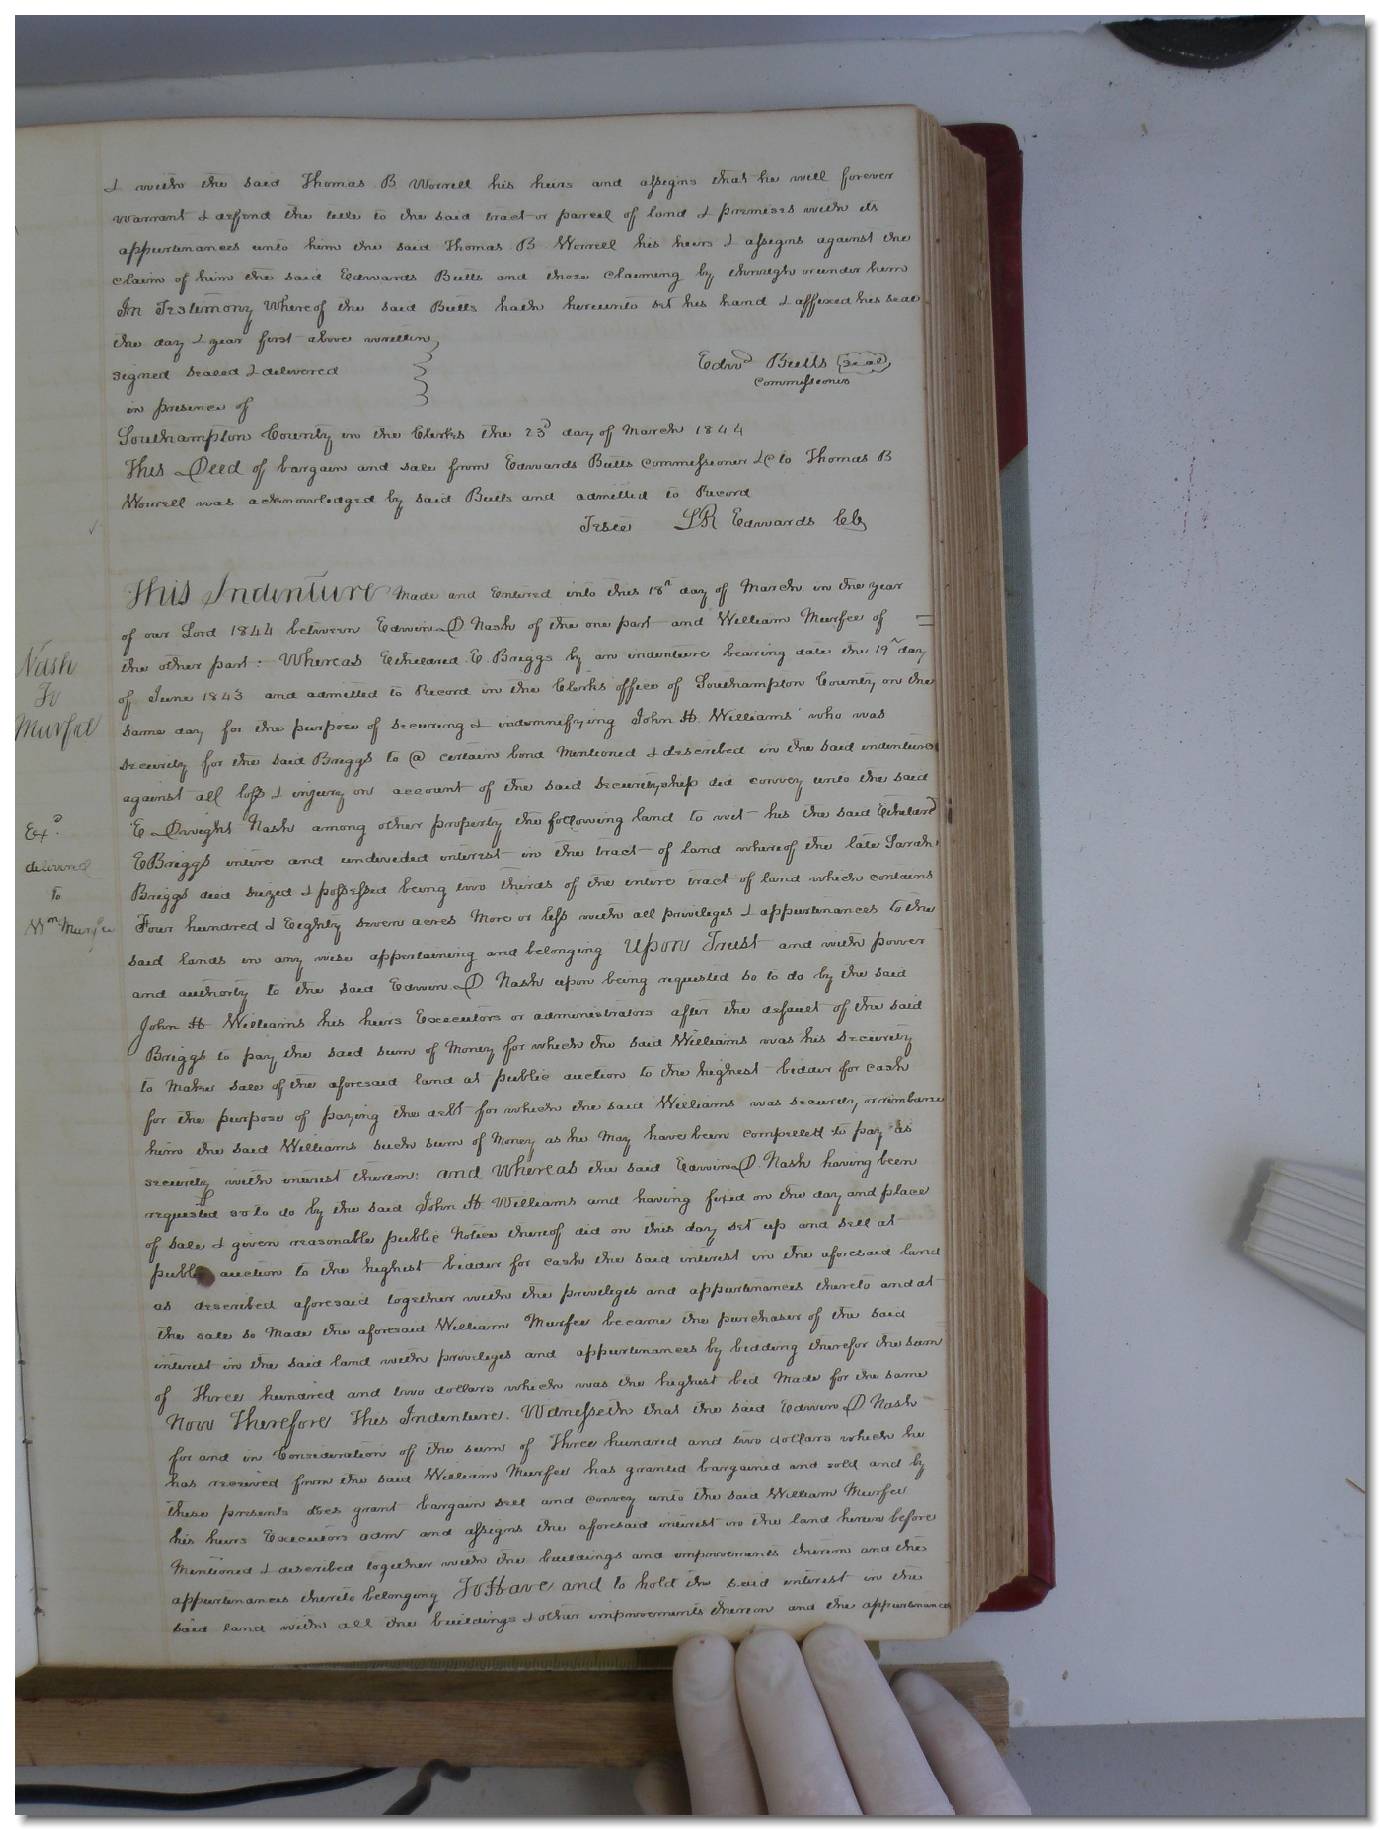 & with the said Thomas B Worrell his heirs and assigns that he will forever
warrant & defend the title to the said tract or parcel of land & premises with its
appurtenances unto him the said Thomas B Worrell his heirs & assigns against the
claim of him the said Edwards Butts and those claiming by through or under him
In Testimony Whereof the said Butts hath hereunto set his hand & affixed his seal
the day & year first above written
signed sealed & delivered
in presence of
Edwd Butts seal
Commissioner
Southampton County in the Clerks the 23d day of March 1844
This Deed of bargain and sale from Edwards Butts Commissioner &c to Thomas B
Worrell was acknowledged by said Butts and admitted to Record
Teste LR Edwards Clk
Nash
To
Murfee
Exd.
delivered
to
Wm Murfee
This Indenture Made and Entered into this 18th day of March in the year
of our Lord 1844 between Edwin D Nash of the one part and William Murfee of
the other part: Whereas Etheldred E. Briggs by an indenture bearing date the 19th day
of June 1843 and admitted to Record in the Clerks office of Southampton County on the
same day for the purpose of securing & indemnifying John H. Williams who was
security for the said Briggs to @ certain bond Mentioned & described in the said indenture
against all loss & injury on account of the said securityship did convey unto the said
E Dwight Nash among other property the following land to wit his the said Etheldred
E Briggs intire and undivided interest in the tract of land whereof the late Sarah
Briggs died seized & possessed being two thirds of the intire tract of land which contains
Four hundred & Eighty seven acres More or less with all privileges & appurtenances to the
said lands in any wise appertaining and belonging Upon Trust and with power
and authorty to the said Edwin D Nash upon being requested so to do by the said
John H Williams his heirs Executors or administrators after the default of the said
Briggs to pay the said sum of Money for which the said Williams was his security
to Make sale of the aforesaid land at public auction to the highest bidder for cash
for the purpose of paying the debt for which the said Williams was security, or reimburse
him the said Williams such sum of Money as he May have been compelled to pay as
security with interest thereon: and Whereas the said Edwin D. Nash having been
requested so to do by the said John H. Williams and having fixed on the day and place
of sale & given reasonable public Notice thereof did on this day set up and sell at
public auction to the highest bidder for cash the said interest in the aforesaid land
as described aforesaid together with the privileges and appurtenances thereto and at
the sale so Made the aforesaid William Murfee became the purchaser of the said
interest in the said land with privileges and appurtenances by bidding therefor the sum
of Three hundred and two dollars which was the highest bid Made for the same
Now Therefore This Indenture. Witnesseth that the said Edwin D Nash
for and in Consideration of the sum of Three hundred and two dollars which he
has received from the said William Murfee has granted bargained and sold and by
these presents does grant bargain sell and convey unto the said William Murfee
his heirs Executors admr and assigns the aforesaid interest in the land herein before
Mentioned & described together with the buildings and improvements thereon and the
appurtenances thereto belonging To Have and to hold the said interest in the
said land with all the buildings & other improvements thereon and the appurtenances